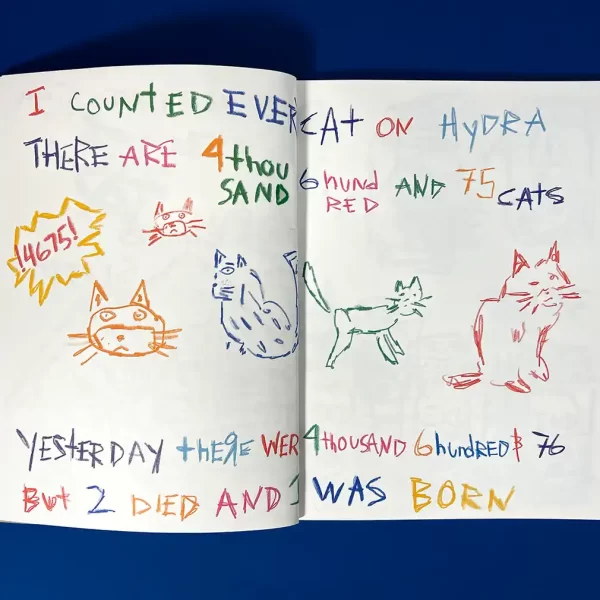 I COUNTED EVERY CAT ON HYDRA
THERE ARE 4 thou 6 hund AND 75 CATS
SAND RED
!4675!
YESTERDAY theRE WERE 4 THOUSAND 6 hUNDRED & 76
But 2 DIED AND 1 WAS BORN